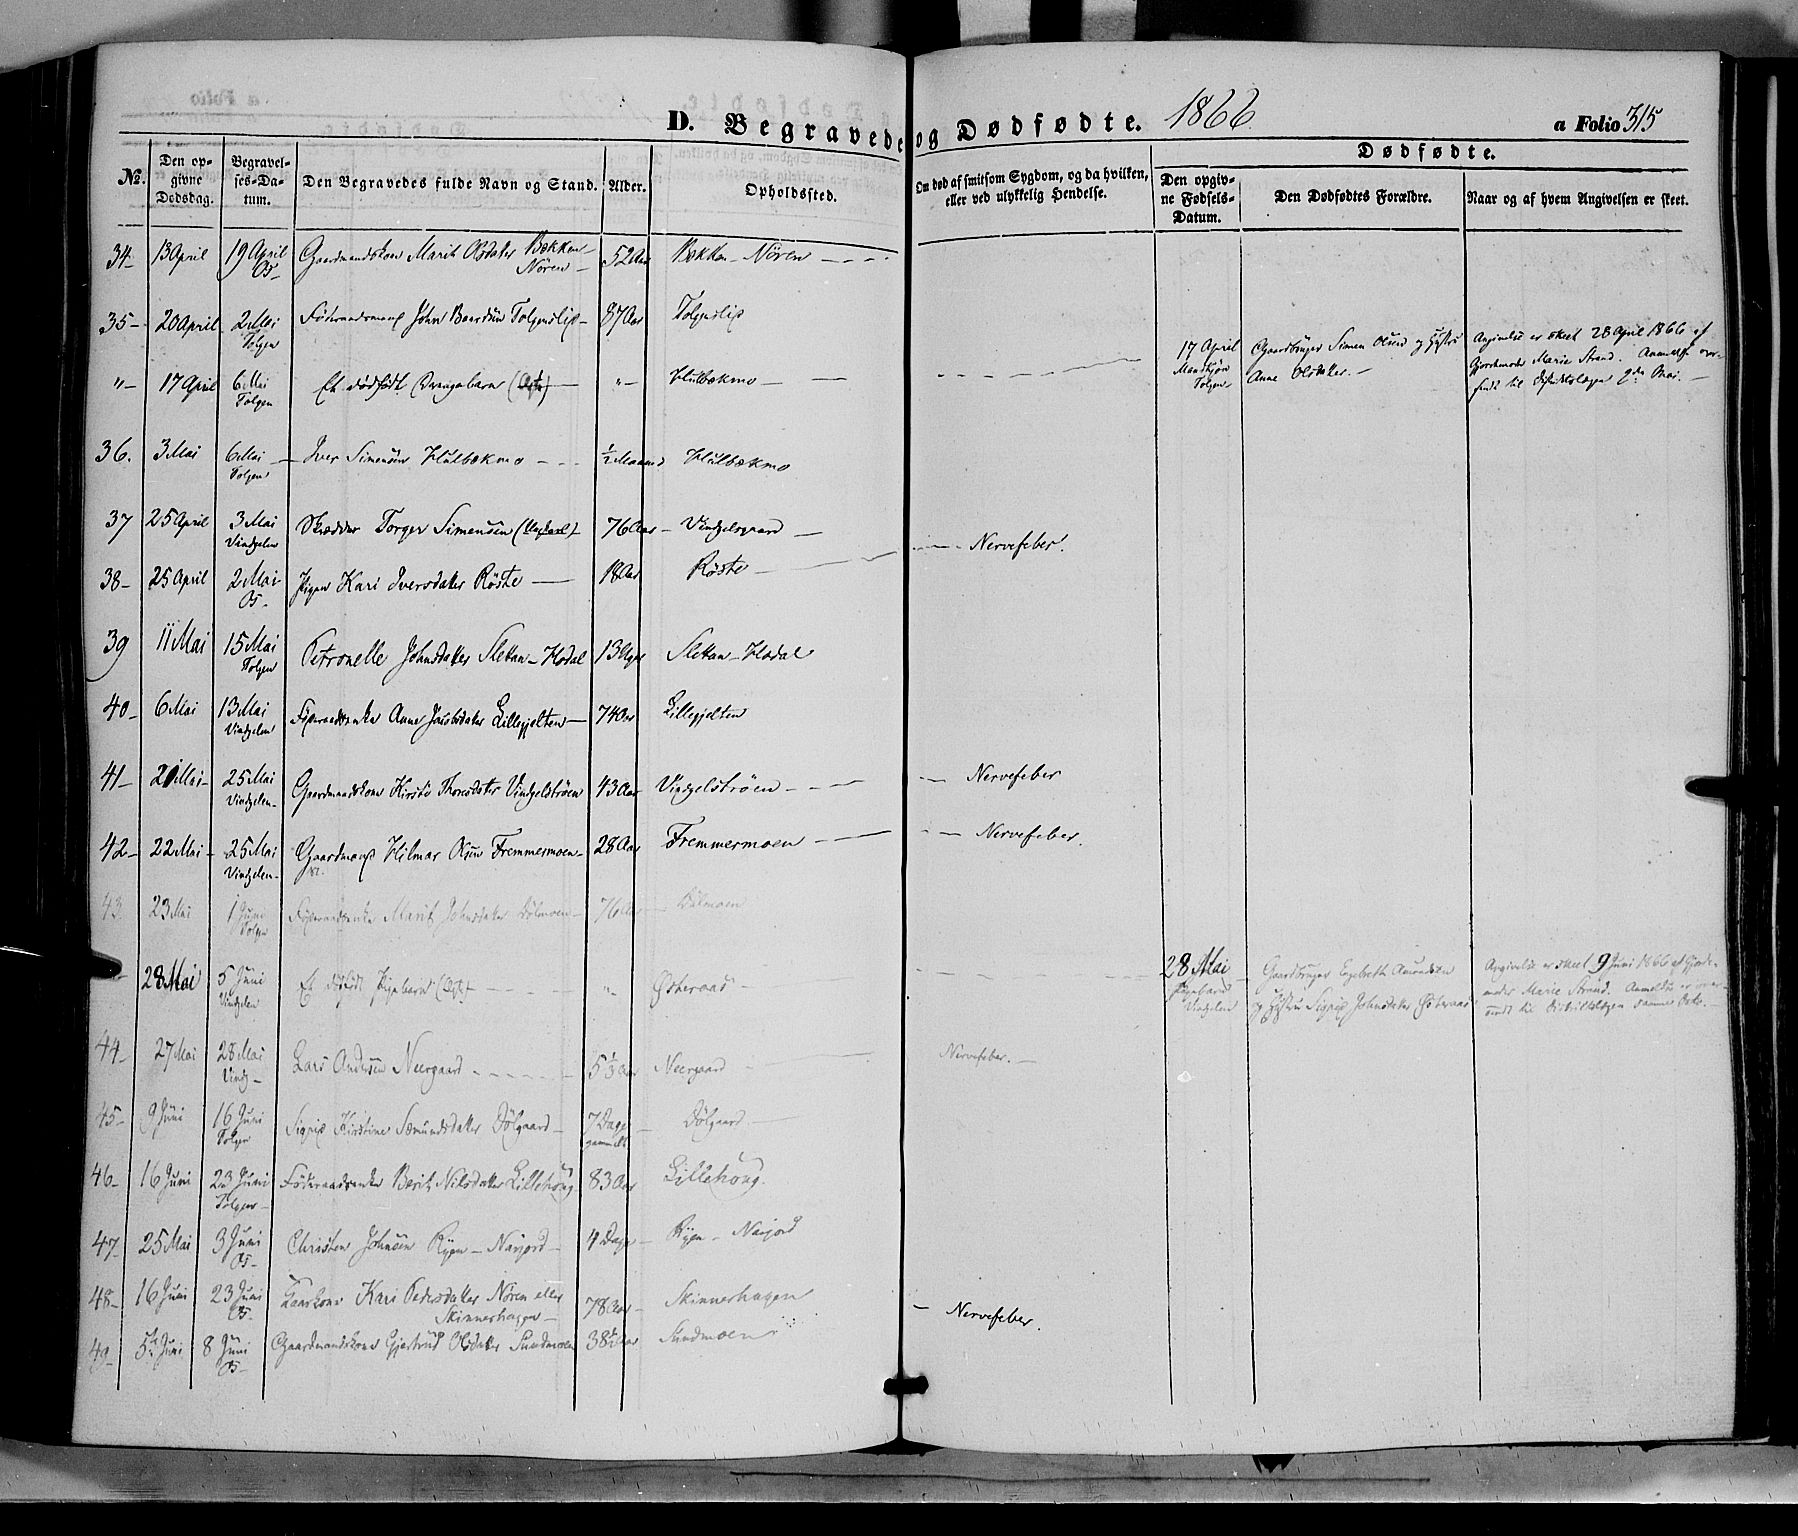 D. Begravede og Dødfødte. 1866. a Folio 315
Dødfødte.
No. Den opgivne Dødsdag. Begravelses-Datum. Den Begravedes fulde Navn og Stand. Alder. Opholdssted. Om død af smitsom Sygdom, og da hvilken, eller ved ulykkelig Hendelse. Den opgivne Fødsels-Datum. Den Dødfødtes Forældre. Naar og af hvem Angivelsen er skeet.
34- 13 April 19 April Os- Gaardmandskone Marit Olsdatter Bækken- Nören- 52 Aar Bækken-Nören
35- 20 April 2 Mai Tolgen John Baardsön 87 Aar
"- 17 April 6 Mai Tolgen Et dødfødt Drengebarn "- Hulbækmo
17 April Tolgen Gaardbruger Simen Olsen og Hustru Anne Olsdatter.
Angivelse er skeet 28 April 1866 af Gjordemoder Marie Strand.
36. 3 Mai 6 Mai Tolgen Iver Simensön Hulbækmo ½ Maaned Hulbækmo
37 25 April 3 Mai Vingelen Skrædder Torger Simensön 76 Aar- Vingelsgaard
38- 25 April 2 Mai Os- Pigen Kari Iversdatter Röste 18 Aar Röste Nervefeber.
39 11 Mai 15 Mai Tolgen Petronelle Johnsdatter Sletten-Hodal 13 Aar Sletten-Hodal
40- 6 Mai 13 Mai Vingelen Anne Jacobsdatter Lillegjelten 74 Aar Lillegjelten
41- 21 Mai- 25 Mai Vingelen- Gaardmandskone Kirsti Thoresdatter Vingelströen 43 Aar Vingelströen Nervefeber
42- 22 Mai- 25 Mai Vingelen- Gaardmand Hilmar Olsen Fremmermoen- 28 Aar Fremmermoen Nervefeber.
43. 23 Mai 1 Juni Tolgen Marit Johnsdatter Dölmoen- 76 Aar Dölmoen
28 Mai 5 Juni Vingelen Et dødfødt Pigebarn "- Østeraas
28 Mai Pigebarn Vingelen Gaardbruger Engebreth Amundsen og Hustru Sigrid Johnsdatter Østeraas
Angivelse er skeet 9 Juni 1866 af Gjordemoder Marie Strand. Anmeldse er oversendt til Distriktslægen samme Dato.
44- 27 Mai 28 Mai Ving- Lars Andersön Neergaard 5½ Aar Neergaard Nervefeber.
45- 9 Juni 16 Juni Tolgen Sigrid Kirstine Sæmundsdatter Dölgaard- 7 Dage gammelt Dölgaard
46- 16 Juni 23 Juni Tolgen- Føderaadsenke Berit Nilsdatter Lillehoug 83 Aar Lillehoug.
47- 25 Mai 3 Juni Os- Christen Johnsön Ryen-Narjord- 4 Dage Ryen-Narjord
48- 16 Juni 23 Juni Os- Kaarkone Kari Pedersdatter Nören eller Skinnerhagen- 78 Aar- Skinnerhagen Nervefeber.
49- 5te Juni 8 Juni Os- Gaardmandskone Gjertrud Olsdatter Sundmoen 38 Aar Sundmoen